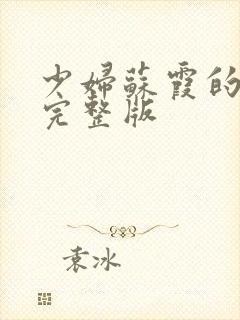 少婦蘇霞的
完整版
袁冰